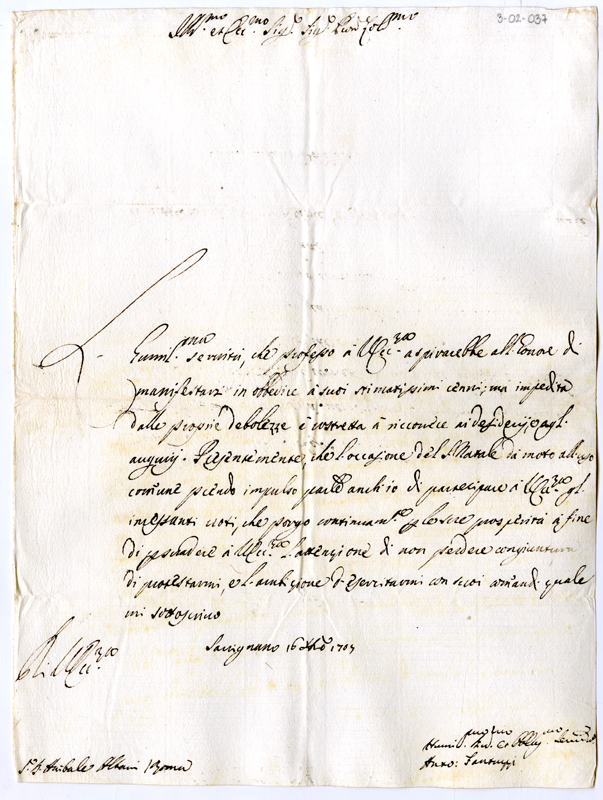 3-02-037
Ill.mo et Ecc.mo Sig.r Sig.r Pron Col.mo
L'umil.ma servitù, che professo à V. Ecc.za aspirarebbe all'honore di
manifestarsi in obbedire à suoi stimatissimi cenni; ma impedita
dalle proprie debolezze è costretta à ricorrere ai desiderij, e agl.
augurij. Presentemente, che l'occasione del S. Natale dà moto all'uso
comune prendo impulso anch'io di partecipare à V. Ecc.za gl.
incessanti voti, che porgo continuam.te per le sue prosperità à fine
di persuadere à V. Ecc.za l'attenzione di non perdere congiuntura
di protestarmi, e l'ambizione d'esercitarmi con suoi comandi quale
mi sottoscrivo
Di V. Ecc.za
Savignano 16 Xbre 1707
S.r D. Anibale Albani / Roma
Humil.mo Dev.mo et Obblig.mo
Anto: Santucci